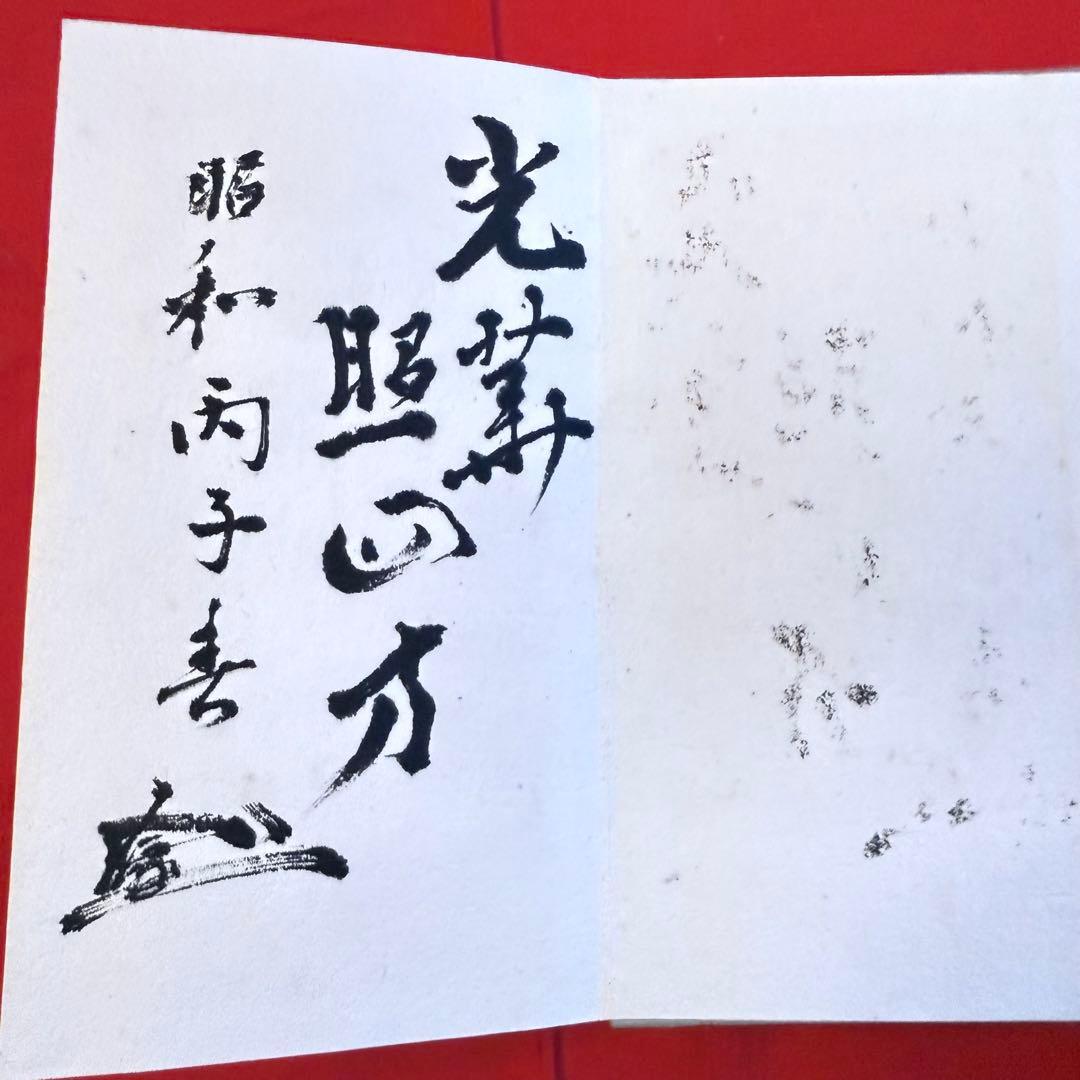 光華
照四方
昭和丙子春